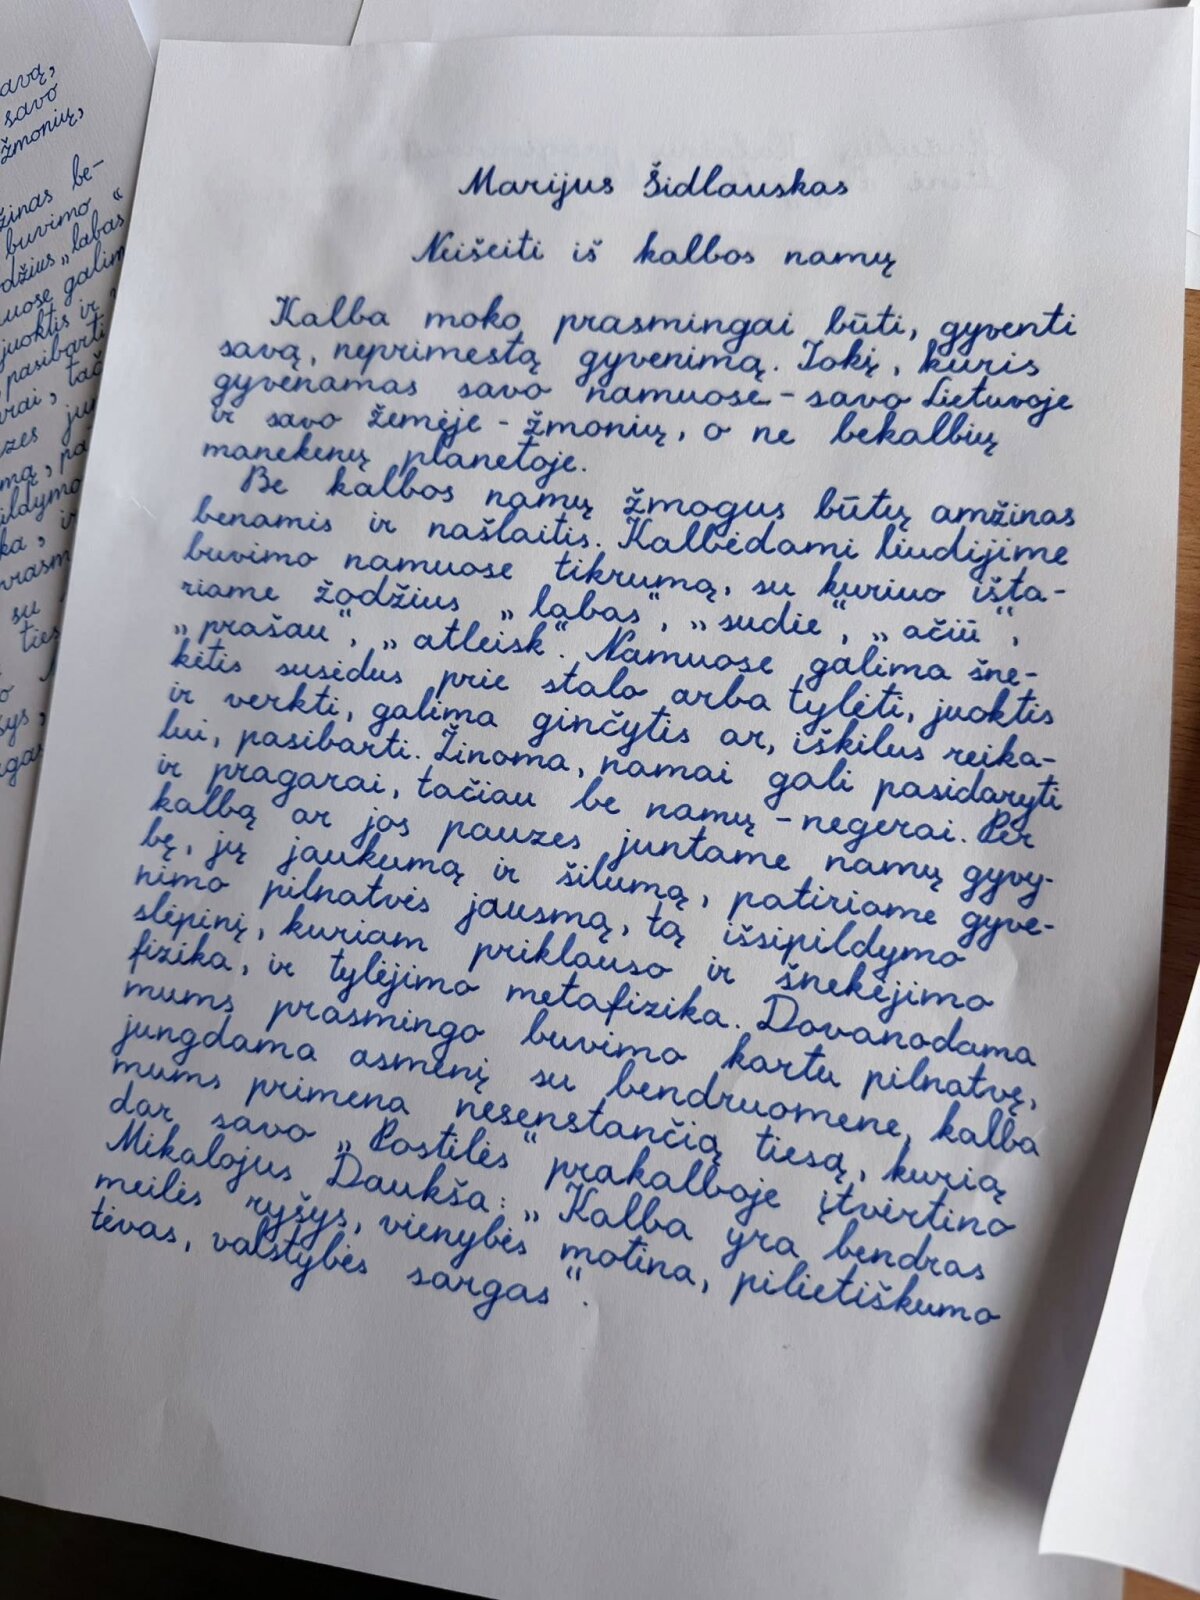 avą,
savo
žmonių,
žinas be-
buvimo
džius „labas“
muose galim
juoktis ir
pasibarti
rai, tač
zes jun
mą, pa
ildymo
ka, ir
prasm
su
ties
sys,
Marijus Šidlauskas
Neišeiti iš kalbos namų
Kalba moko prasmingai būti, gyventi
savą, neprimestą gyvenimą. Tokį, kuris
gyvenamas savo namuose - savo Lietuvoje
ir savo žemėje - žmonių, o ne bekalbių
manekenų planetoje.
Be kalbos namų žmogus būtų amžinas
benamis ir našlaitis. Kalbėdami liudijime
buvimo namuose tikrumą, su kuriuo išta-
riame žodžius „labas“, „sudie“, „ačiū“,
„prašau“, „atleisk“. Namuose galima šne-
kėtis susėdus prie stalo arba tylėti, juoktis
ir verkti, galima ginčytis ar, iškilus reika-
lui, pasibarti. Žinoma, namai gali pasidaryti
ir pragarai, tačiau be namų - negerai. Per
kalbą ar jos pauzes juntame namų gyvy-
bę, jų jaukumą ir šilumą, patiriame gyve-
nimo pilnatvės jausmą, tą išsipildymo
slėpinį, kuriam priklauso ir šnekėjimo
fizika, ir tylėjimo metafizika. Dovanodama
mums prasmingo buvimo kartu pilnatvę,
jungdama asmenį su bendruomene, kalba
mums primena nesenstančią tiesą, kurią
dar savo „Postilės“ prakalboje įtvirtino
Mikalojus Daukša: „Kalba yra bendras
meilės ryšys, vienybės motina, pilietiškumo
tėvas, valstybės sargas“.